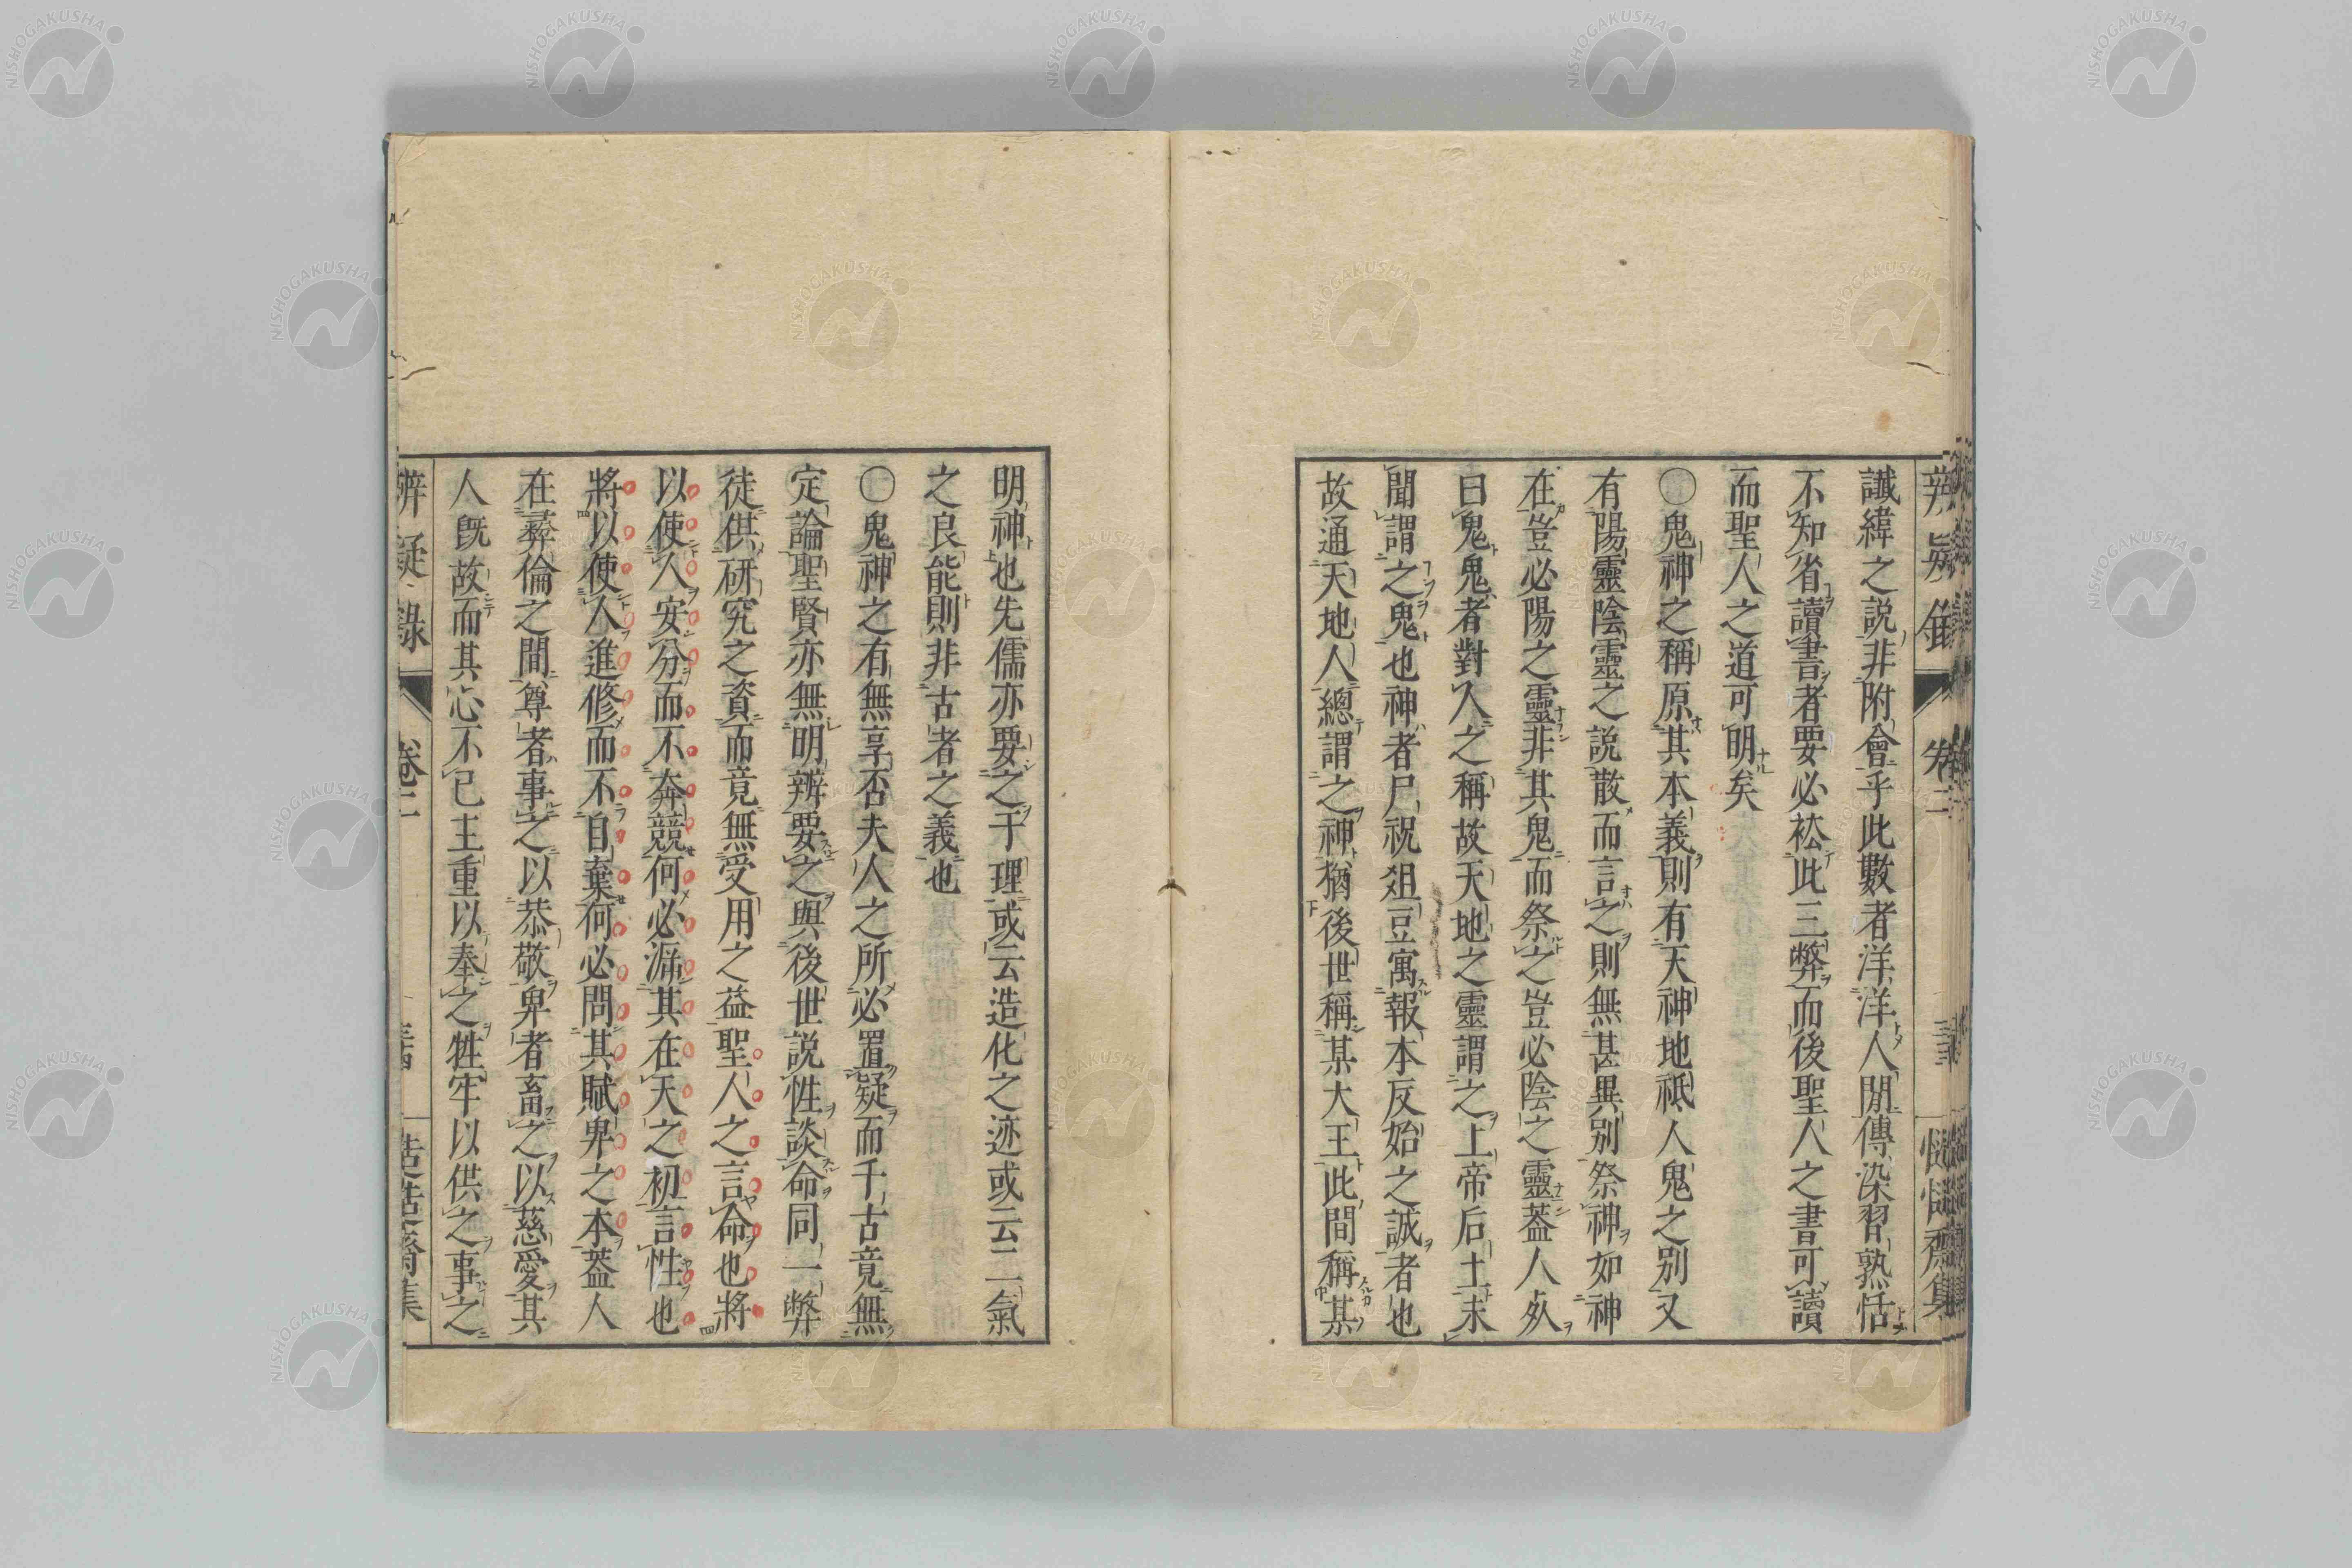 辨疑錄 卷三 慥慥齋集
讖緯之説非附會乎此數者洋洋人閒傳染習熟恬
不知省讀書者要必袪此三弊而後聖人之書可讀
而聖人之道可明矣
〇鬼神之稱原其本義則有天神地祇人鬼之別又
有陽靈陰靈之説散而言之則無甚異別祭神如神
在豈必陽之靈非其鬼而祭之豈必陰之靈蓋人歿
曰鬼鬼者對人之稱故天地之靈謂之上帝后土未
聞謂之鬼也神者尸祝俎豆寓報本反始之誠者也
故通天地人總謂之神猶後世稱某大王此間稱某
明神也先儒亦要之于理或云造化之迹或云二氣
之良能則非古者之義也
〇鬼神之有無享否夫人之所必置疑而千古竟無
定論聖賢亦無明辨要之與後世説性談命同一弊
徒供研究之資而竟無受用之益聖人之言命也將
以使人安分而不奔競何必泝其在天之初言性也
將以使人進修而不自棄何必問其賦卑之本蓋人
在彝倫之間尊者事之以恭敬卑者畜之以慈愛其
人既故而其心不已王重以奉之牲牢以供之事之
辨疑錄 卷三 慥慥齋集
NISHOGAKUSHA